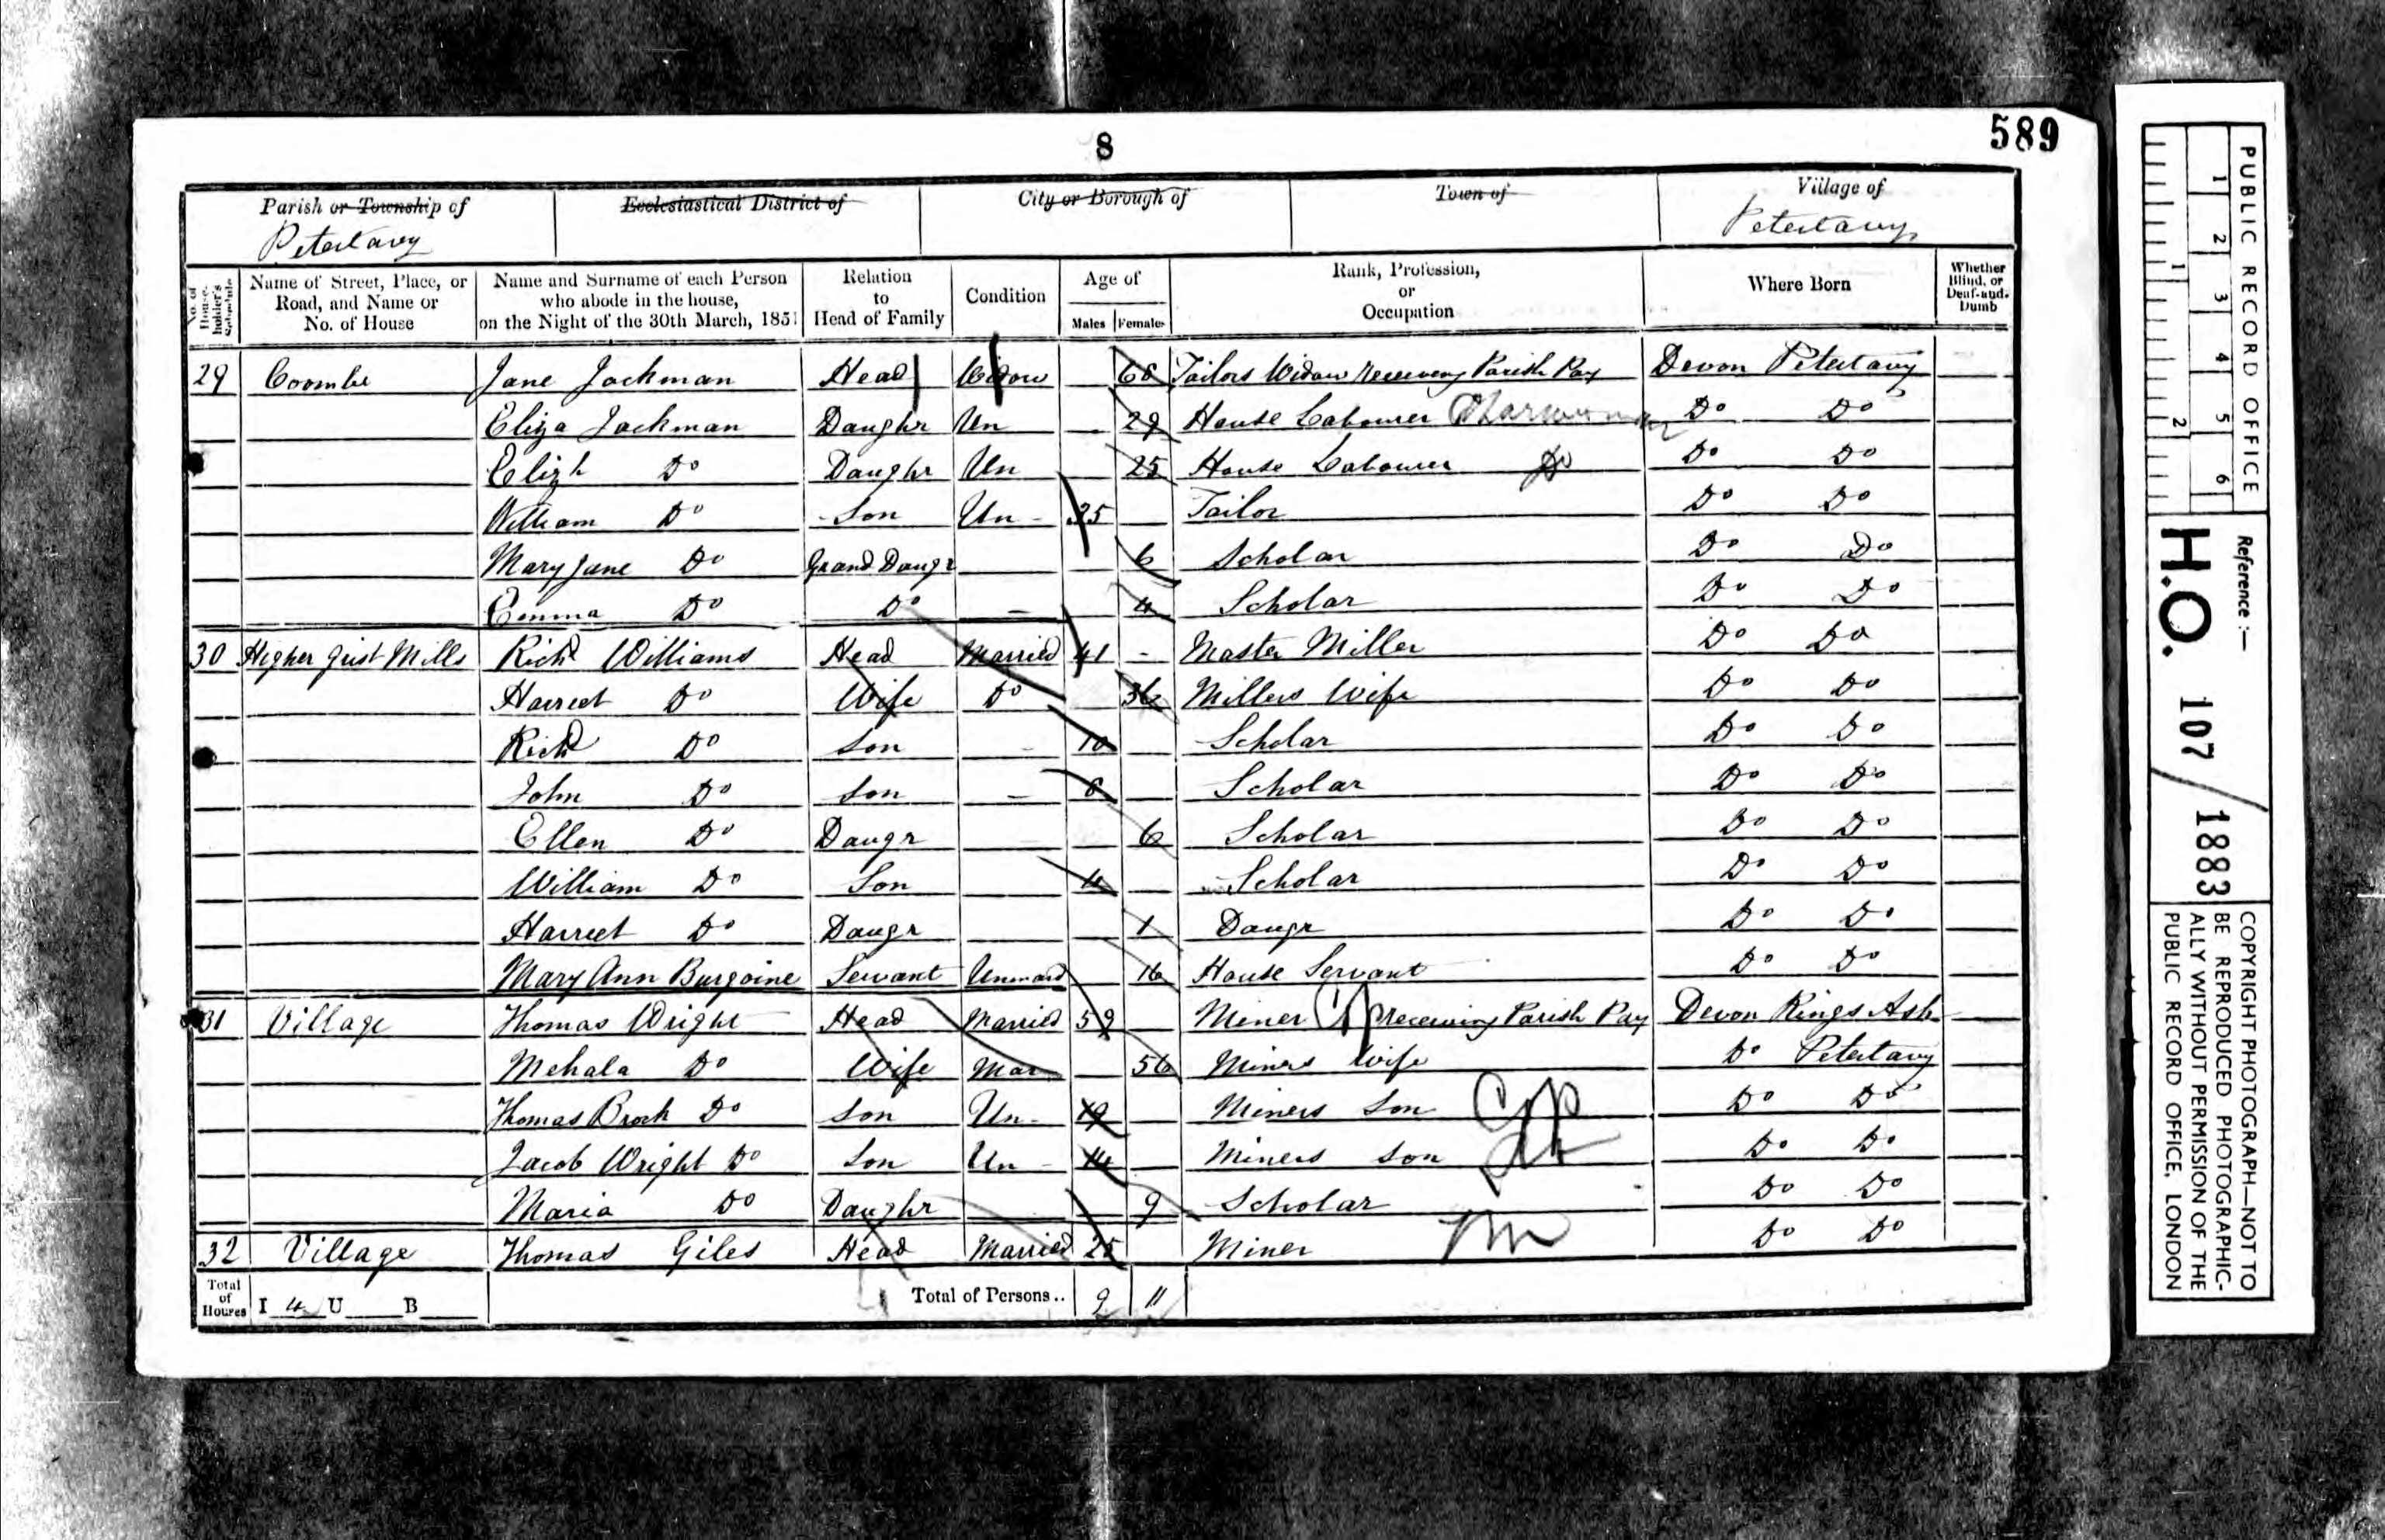 8
589
Parish or Township of
Petertavy
Ecclesiastical District of
City or Borough of
Town of
Village of
Petertavy
No. of House-holder's Schedule
Name of Street, Place, or Road, and Name or No. of House
Name and Surname of each Person who abode in the house, on the Night of the 30th March, 1851
Relation to Head of Family
Condition
Age of
Males Females
Rank, Profession, or Occupation
Where Born
Whether Blind, or Deaf-and-Dumb
29 Coombe Jane Jackman Head Widow 68 Tailors Widow receiving Parish Pay Devon Petertavy
Eliza Jackman Daughr Un 29 House Labourer Do Do
Elizh Do Daughr Un 25 House Labourer Do Do Do
William Do Son Un 25 Tailor Do Do
Mary Jane Do Grand Daugr 6 Scholar Do Do
Emma Do Do 4 Scholar Do Do
30 Higher Grist Mills Richd Williams Head Married 41 Master Miller Do Do
Harriet Do Wife Do 36 Millers Wife Do Do
Richd Do Son 10 Scholar Do Do
John Do Son 8 Scholar Do Do
Ellen Do Daugr 6 Scholar Do Do
William Do Son 4 Scholar Do Do
Harriet Do Daugr 1 Daugr Do Do
Mary Ann Burgoine Servant Unmard 16 House Servant Do Do
31 Village Thomas Wright Head Married 59 Miner receiving Parish Pay Devon Kings Ash
Mehala Do Wife Mar 56 Miners Wife Do Petertavy
Thomas Brock Do Son Un 19 Miners Son Do Do
Jacob Wright Do Son Un 14 Miners Son Do Do
Maria Do Daughr 9 Scholar Do Do
32 Village Thomas Giles Head Married 25 Miner Do Do
Total of Houses I 4 U B
Total of Persons.. 9 11
PUBLIC RECORD OFFICE
1 2 3 4 5 6
1 2
Reference :—
H.O. 107/1883
COPYRIGHT PHOTOGRAPH—NOT TO
BE REPRODUCED PHOTOGRAPHIC-
ALLY WITHOUT PERMISSION OF THE
PUBLIC RECORD OFFICE, LONDON